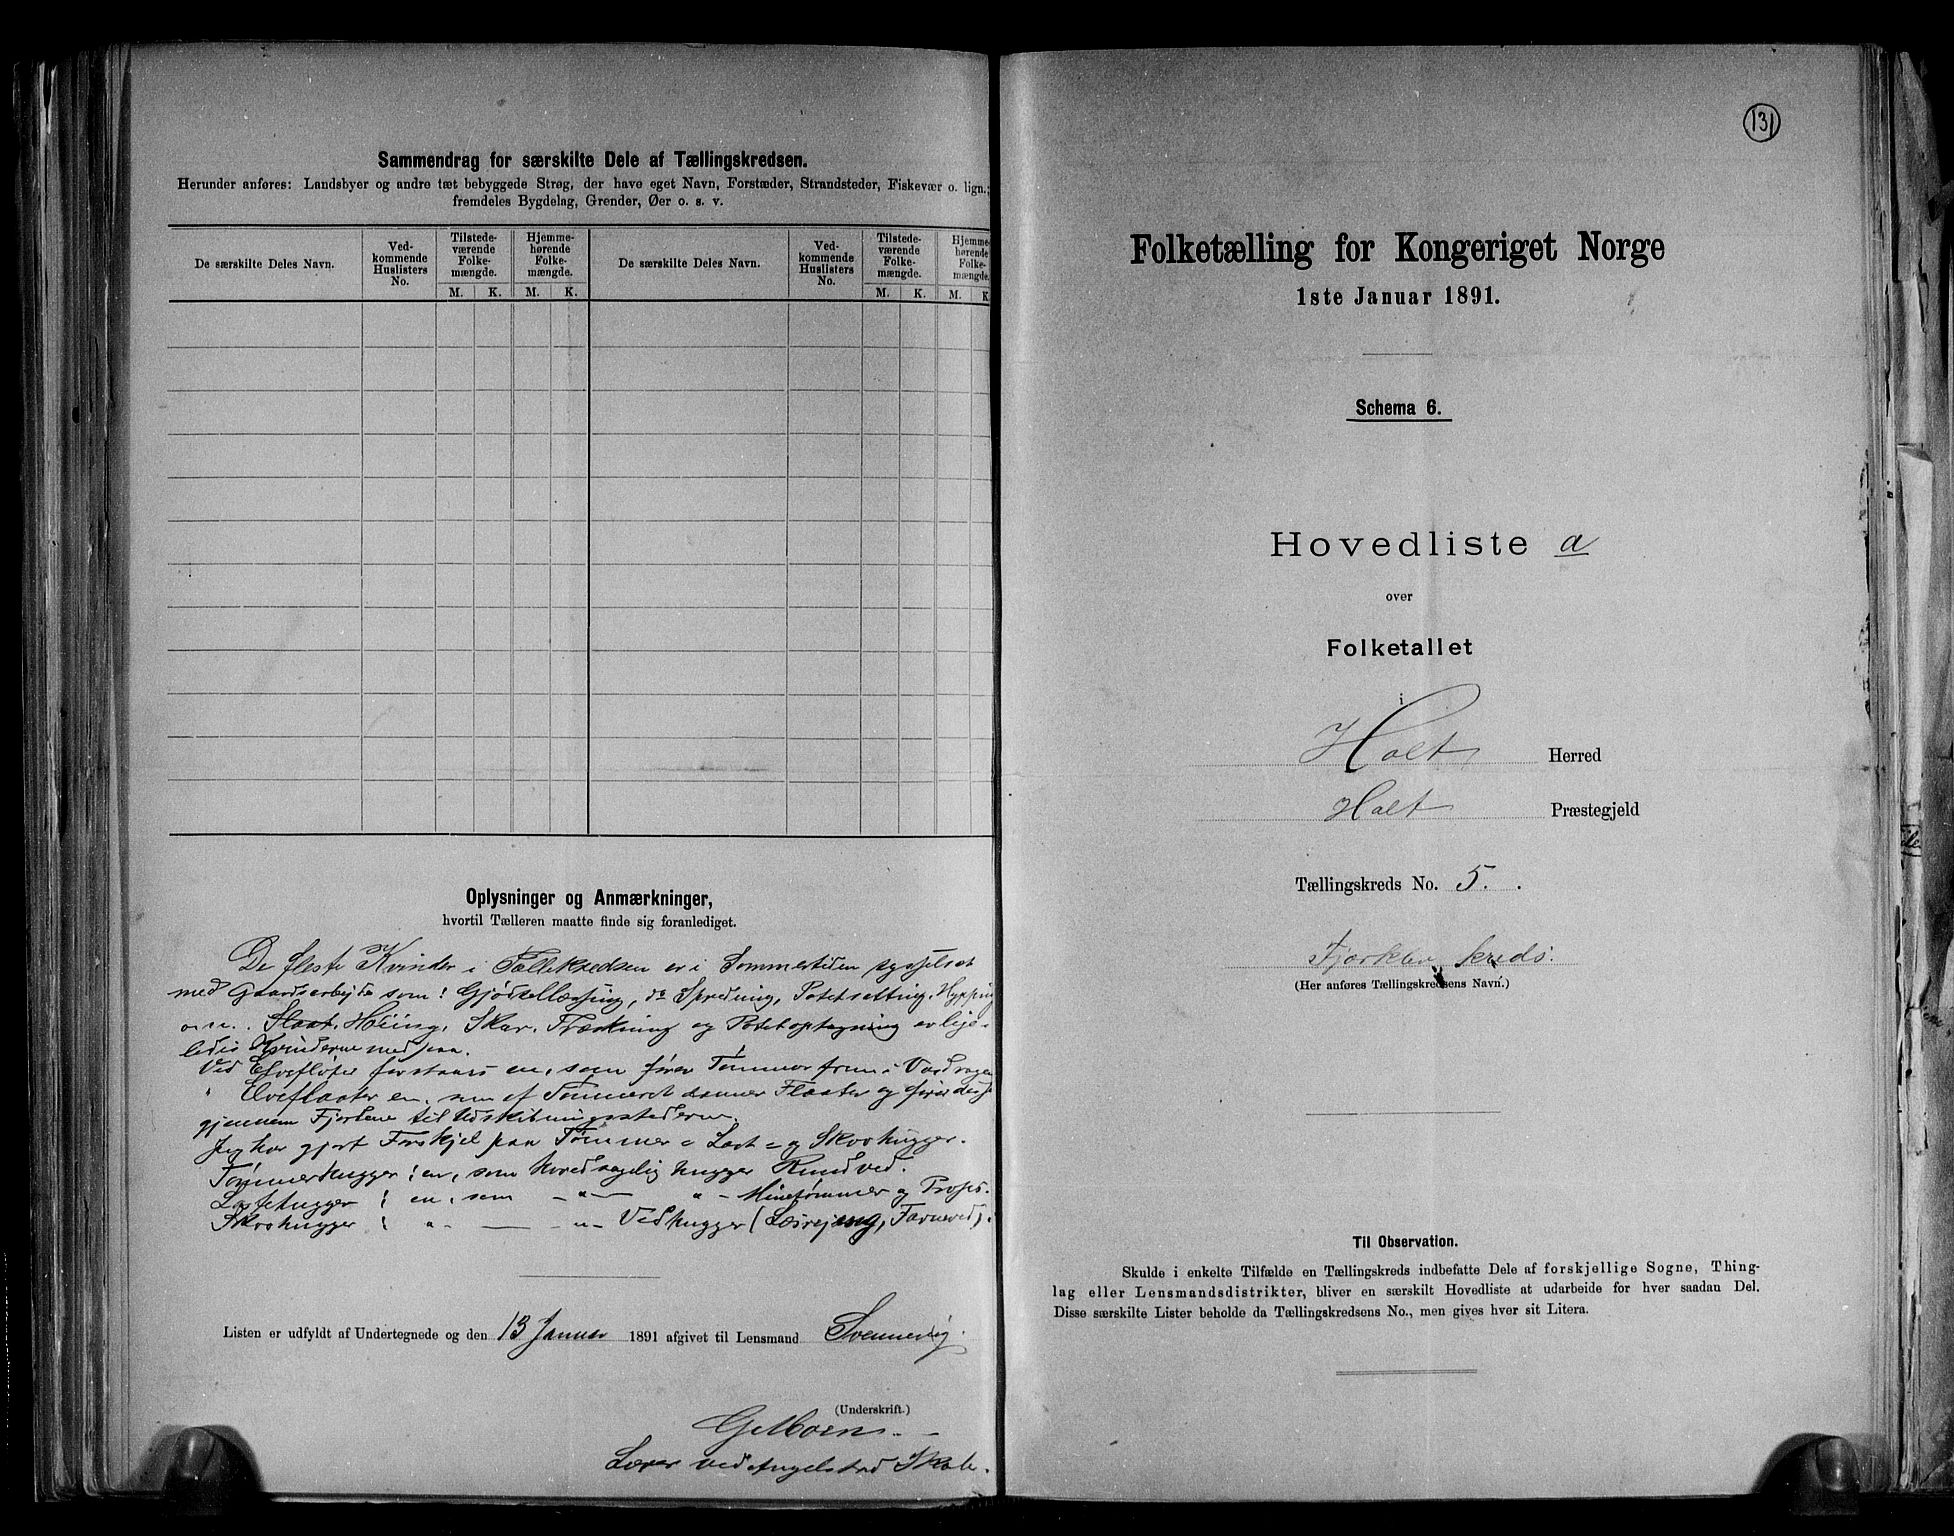 Sammendrag for særskilte Dele af Tællingskredsen.
Herunder anføres: Landsbyer og andre tæt bebyggede Strøg, der have eget Navn, Forstæder, Strandsteder, Fiskevær o. lign.;
fremdeles Bygdelag, Grender, Øer o. s. v.
De særskilte Deles Navn.
Ved-
kommende
Huslisters
No.
Tilstede-
værende
Folke-
mængde.
Hjemme-
hørende
Folke-
mængde.
M. K. M. K.
De særskilte Deles Navn.
Ved-
kommende
Huslisters
No.
Tilstede-
værende
Folke-
mængde.
Hjemme-
hørende
Folke-
mængde.
M. K. M. K
Oplysninger og Anmærkninger,
hvortil Tælleren maatte finde sig foranlediget.
De fleste Kvinder i Tællekredsen er i Sommertiden sysselsat
med Gaardsarbejde som: Gjødsellæsning, do Spredning, Potetsetting, Hypping
Slaat, Høiing, Skur, Træskning og Potetoptagning er lige-
ledes Kvinderne med paa.
Ved Elvefløter forstaaes en, som fører Tømmer frem i Vasdragen
" Elveflaater en, som af Tømmeret danner Flaater og fører
gjennem Fjordene til Udskibningsstederne.
Jeg har gjort Forskjel paa Tømmer- Last- og Skovhugger.
Tømmerhugger : en, som hovedsagelig hugger Rundved.
Lasthugger : en, som -"- " - Minetømmer og Props.
Skovhugger : " - -"- Vedhugger (Favneved).
Listen er udfyldt af Undertegnede og den 13 Januar 1891 afgivet til Lensmand Svennevig.
(Underskrift.)
G. Moen.
Lærer ved Angelstad Skole.
131
Folketælling for Kongeriget Norge
1ste Januar 1891.
Schema 6.
Hovedliste a
over
Folketallet
i
Holt Herred
Holt Præstegjeld
Tællingskreds No. 5.
Kreds.
(Her anføres Tællingskredsens Navn.)
Til Observation.
Skulde i enkelte Tilfælde en Tællingskreds indbefatte Dele af forskjellige Sogne, Thing-
lag eller Lensmandsdistrikter, bliver en særskilt Hovedliste at udarbeide for hver saadan Del.
Disse særskilte Lister beholde da Tællingskredsens No., men gives hver sit Litera.